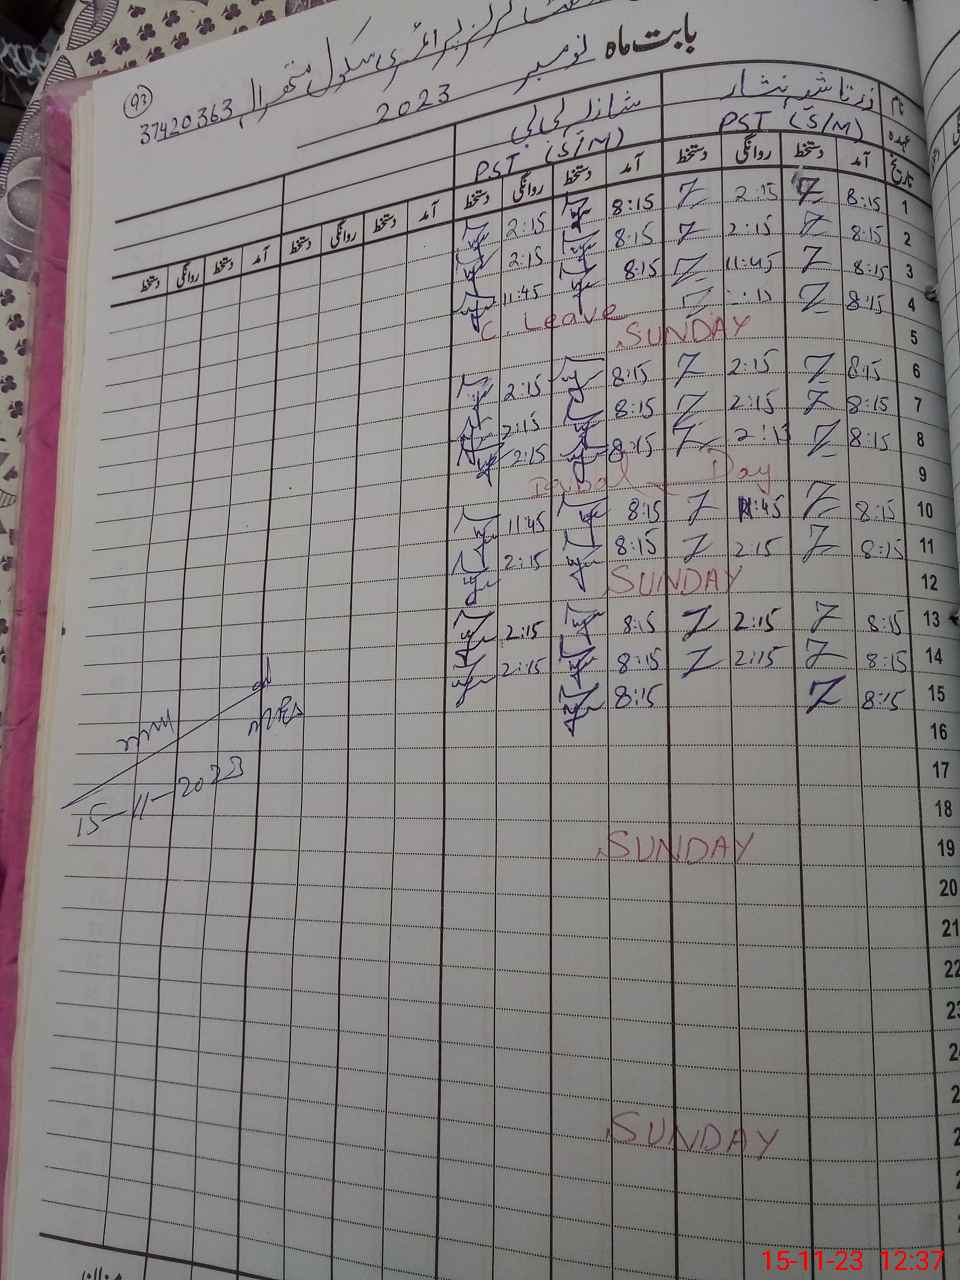 93
گرلز پرائمری سکول 37420363
بابت ماہ نومبر 2023
نام شازیہ بی بی
عہدہ PST (S/M) PST (S/M)
تاریخ آمد دستخط روانگی دستخط آمد دستخط روانگی دستخط آمد دستخط روانگی دستخط آمد دستخط روانگی دستخط
1 8:15 Z 2:15 Z 8:15 2:15
2 8:15 Z 2:15 Z 8:15 2:15
3 8:15 Z 11:45 Z 8:15 11:45
4 8:15 Z Z C. Leave
5 SUNDAY
6 8:15 Z 2:15 Z 8:15 2:15
7 8:15 Z 2:15 Z 8:15 2:15
8 8:15 Z 2:15 Z 8:15 2:15
9 Iqbal Day
10 8:15 Z 11:45 Z 8:15 11:45
11 8:15 Z 2:15 Z 8:15 2:15
12 SUNDAY
13 8:15 Z 2:15 Z 8:15 2:15
14 8:15 Z 2:15 Z 8:15 2:15
15 8:15 Z 8:15
16
17
18
19 SUNDAY
20
21
22
SUNDAY
15-11-2023
15-11-23 12:37